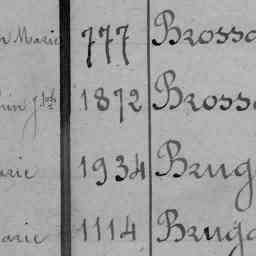 Marie 777 Brossa
1872 Bross
arie 1934 Brug
arie 1114 Bruga